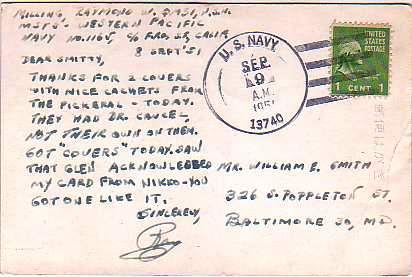 MILLING, RAYMOND W. QM3, U.S.N.
MSTS - WESTERN PACIFIC
NAVY NO. 1165, C/O F.P.O., S.F., CALIF
8 SEPT '51
DEAR SMITTY,
THANKS FOR 2 COVERS
WITH NICE CACHETS FROM
THE PICKERAL - TODAY.
THEY HAD BR. CANCEL,
NOT THEIR OWN ON THEM.
GOT "COVERS" TODAY. SAW
THAT GLEN ACKNOWLEDGED
MY CARD FROM NIKKO - YOU
GOT ONE LIKE IT.
SINCERELY,
Ray
U.S. NAVY
SEP
9
A.M.
1951
13740
UNITED STATES
POSTAGE
1 CENT 1
MR. WILLIAM E. SMITH
326 S. POPPLETON ST.
BALTIMORE 30, MD.